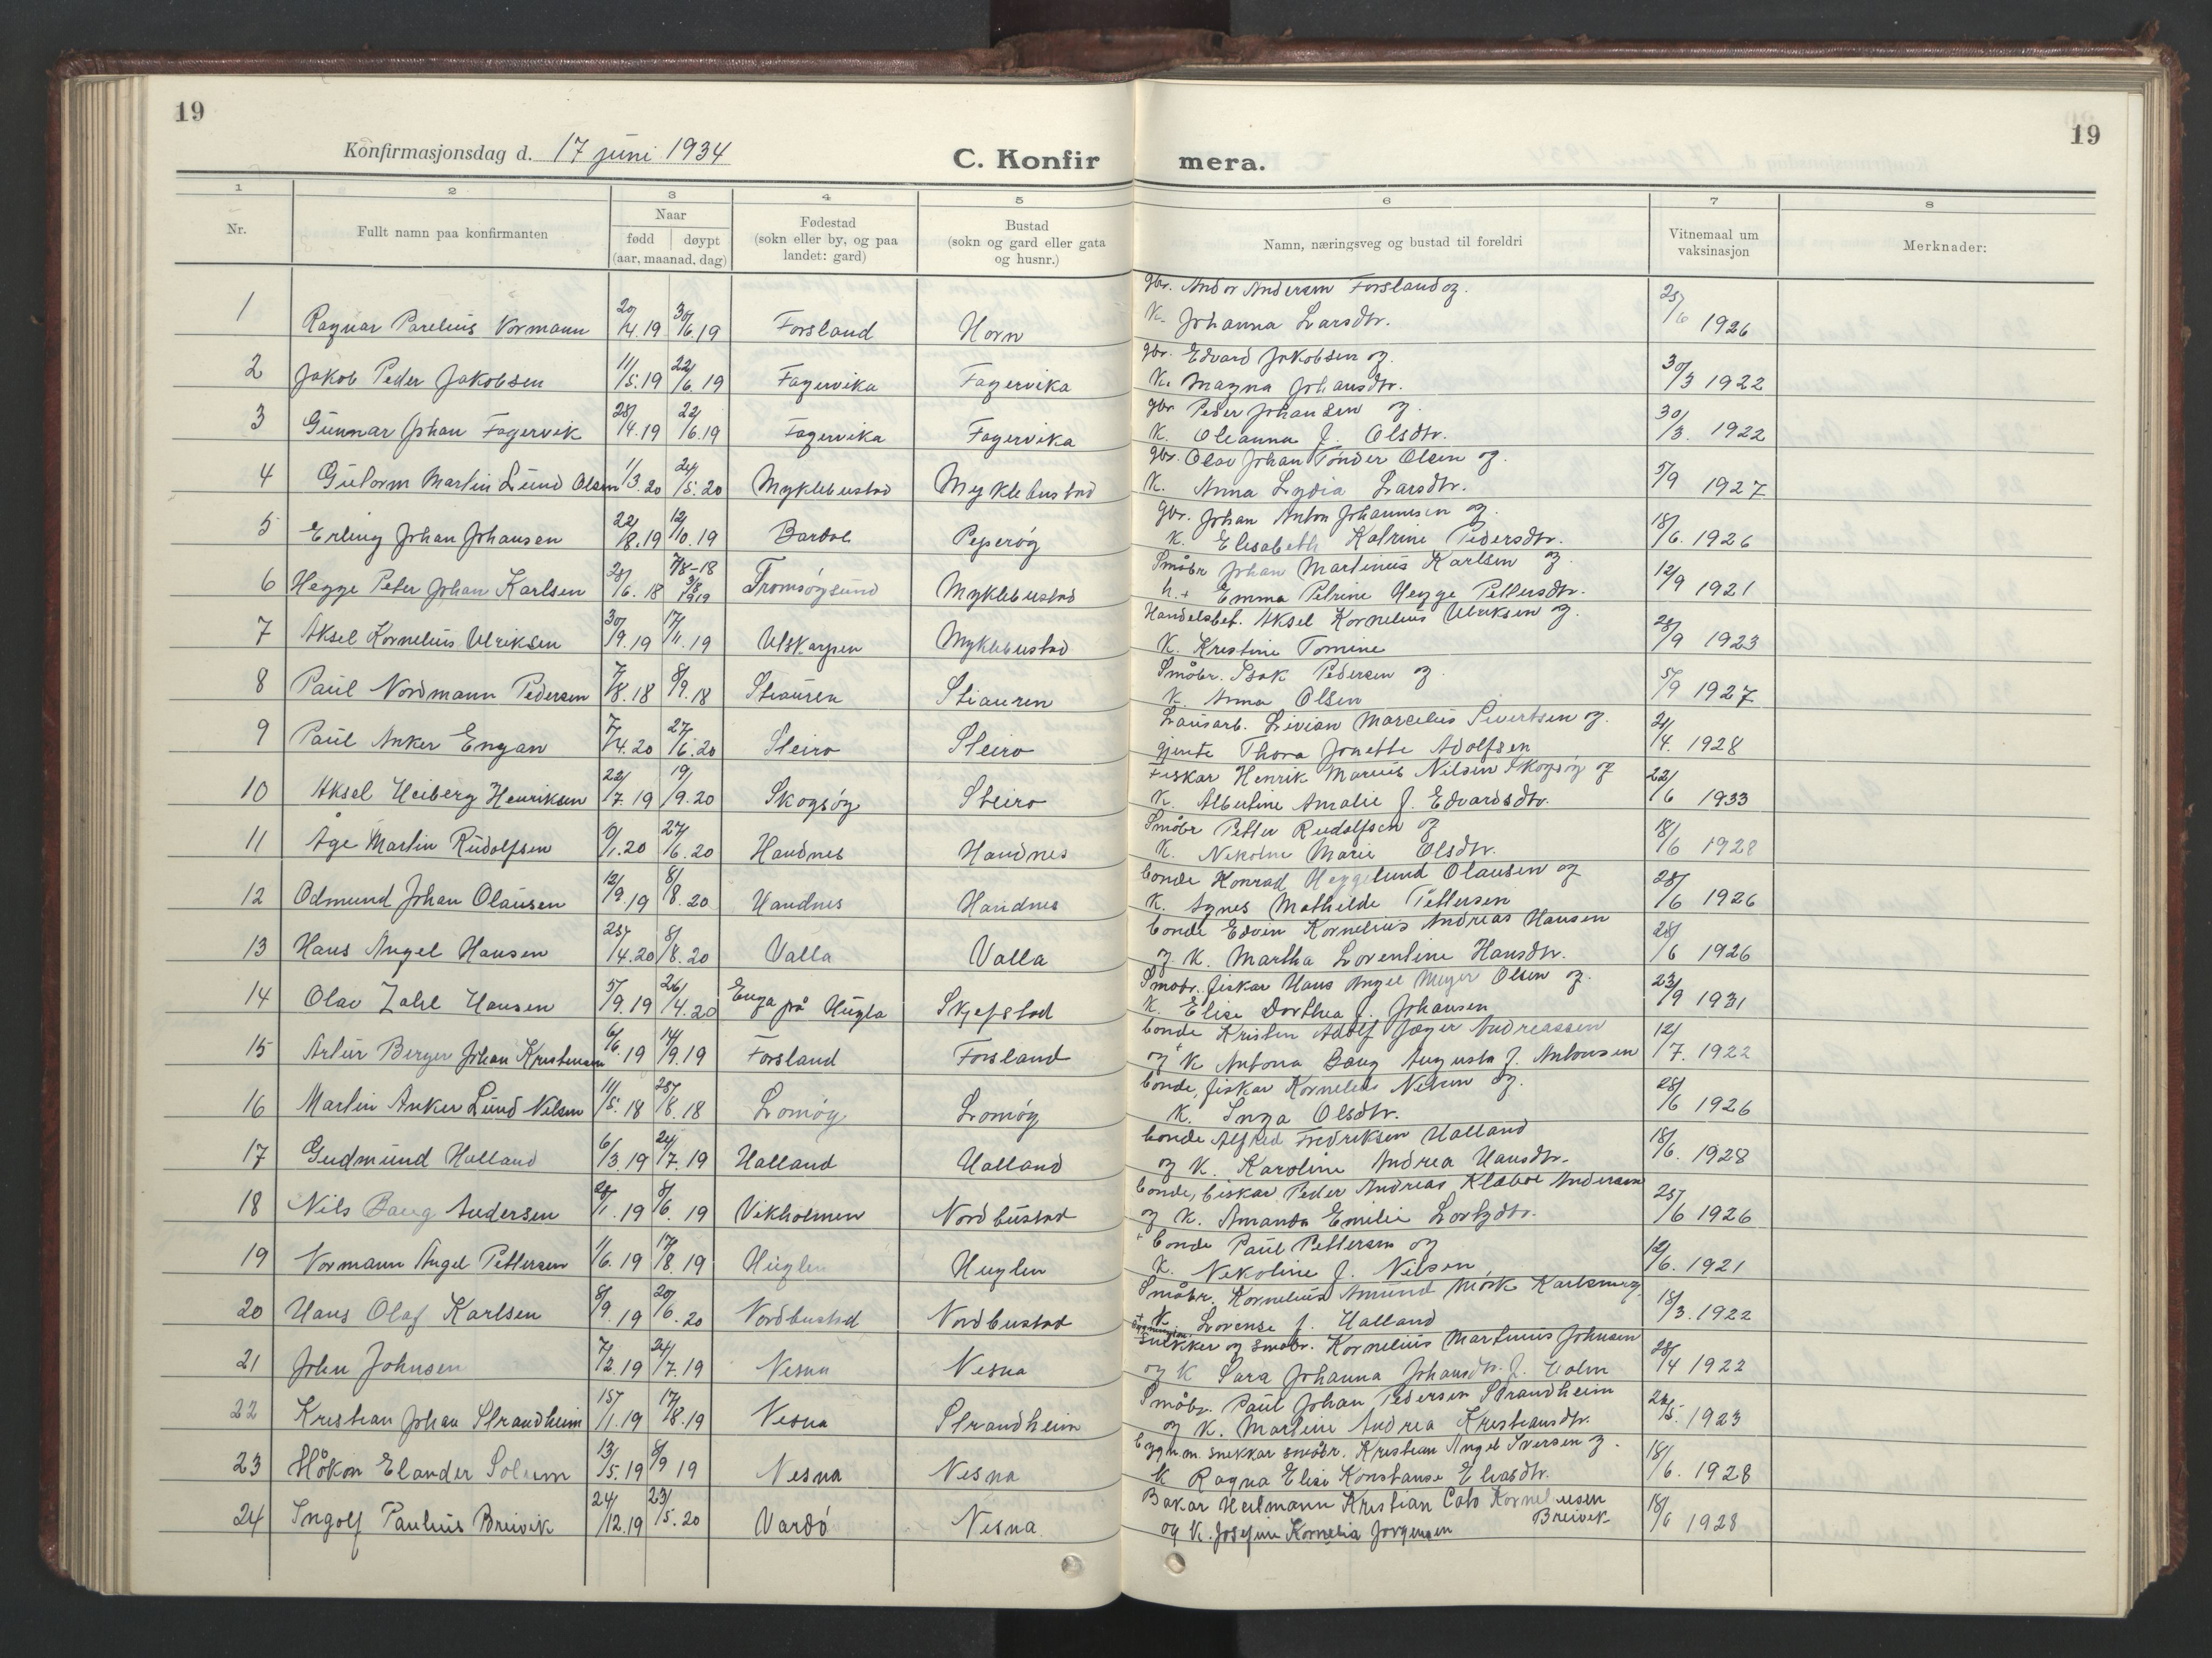 19
19
Konfirmasjonsdag d. 17 juni 1934
C. Konfirmera.
1 2 3 4 5 6 7 8
Nr.
Fullt namn paa konfirmanten
Naar
fødd | døypt
(aar, maanad, dag)
Fødestad
(sokn eller by, og paa
landet: gard)
Bustad
(sokn og gard eller gata
og husnr.)
Namn, næringsveg og bustad til foreldri
Vitnemaal um
vaksinasjon
Merknader:
gbr. Andor Andersen Forsland og
1 Ragnar Parelius Normann 20/4.19 30/6.19 Forsland Horn K. Johanna Larsdtr. 25/6 1926
gbr. Edvard Jakobsen og
2 Jakob Peder Jakobsen 11/5.19 22/6.19 Fagervika Fagervika K. Magna Johansdtr. 30/3 1922
gbr. Peder Johansen og
3 Gunnar Johan Fagervik 28/4.19 22/6.19 Fagervika Fagervika K. Oleanna f. Olsdtr. 30/3. 1922
gbr. Olav Johan Tönder Olsen og
4 Gutorm Martin Lund Olsen 1/3.20 24/5.20 Myklebustad Myklebustad K. Anna Lydia Larsdtr. 5/9 1927
gbr. Johan Anton Johannesen og
5 Erling Johan Johansen 22/8.19 12/10.19 Bardal Pepersøy K. Elisabeth Katrine Pedersdtr. 18/6. 1926
Småbr Johan Martinius Karlsen og
6 Hegge Peter Johan Karlsen 28/6.18 7/8-18 3/8 1919 Tromsøysund Myklebustad h.+ Emma Petrine Hegge Pettersdtr. 12/9 1921
Handelsbet. Aksel Kornelius Ulriksen og
7 Aksel Kornelius Ulriksen 30/9.19 17/11.19 Utskarpen Myklebustad K. Kristine Tomine 28/9 1923
Småbr. Isak Pedersen og
8 Paul Nordmann Pedersen 7/8.18 8/9.18 Stiauren Stiauren K. Anna Olsen 5/9 1927
Lausarb. Livian Marcelius Sivertsen og
9 Paul Anker Engan 7/4.20 27/6.20 Sleiro Sleiro gjente Thora Jonette Adolfsen 21/4. 1928
Fiskar Henrik Marius Nilsen Skogsøy og
10 Aksel Heiberg Henriksen 22/7.19 19/9.20 Skogsøy Steiro K. Albertine Amalie f. Edvardsdtr. 22/6 1933
Småbr Petter Rudolfsen og
11 Åge Martin Rudolfsen 9/1.20 27/6.20 Handnes Handnes K. Nekoline Marie Olsdtr. 18/6 1928
bonde Konrad Heggelund Olausen og
12 Odmund Johan Olausen 12/9.19 8/8.20 Handnes Handnes K. Agnes Mathilde Pettersen 28/6 1926
bonde Edvin Kornelius Andreas Hansen
13 Hans Angel Hansen 25/4.20 8/8.20 Valla Valla og K. Martha Loventine Hansdtr. 28/6 1926
Småbr. fiskar Hans Angel Meyer Olsen og
14 Olav Zahl Hansen 5/9.19 26/4.20 Enga på Hugla Skjefstad K. Elise Dorthea f. Johansen 23/9 1931
bonde Kristen Adolf Jæger Andreassen
15 Artur Berger Johan Kristensen 6/6.19 14/9.19 Forsland Forsland og K Antona Baug Augusta f. Antonsen 12/7. 1922
bonde, fiskar Kornelius Nilsen og
16 Martin Anker Lund Nilsen 11/5.18 25/8.18 Lomøy Lomøy K. Inga Olsdtr. 28/6 1926
bonde Alfred Fredriksen Halland
17 Gudmund Halland 6/3.19 24/7.19 Halland Halland og K. Karoline Andrea Hansdtr. 18/6. 1928
bonde, fiskar Peder Andreas Klæboe Andersen
18 Nils Baug Andersen 28/1.19 8/6.19 Vikholmen Nordbustad og K. Amanda Emilie Lortzdtr. 25/6 1926
bonde Paul Pettersen og
19 Normann Angel Pettersen 11/6.19 17/8.19 Huglen Huglen K. Nekoline f. Nilsen 12/6. 1921
Småbr. Kornelius Amund Mörk Karlsen og
20 Hans Olaf Karlsen 8/9.19 20/6.20 Nordbustad Nordbustad K Lorense f. Halland 18/3. 1922
snekker og småbr. Kornelius Martinius Johnsen
21 John Johnsen 7/2.19 24/7.19 Nesna Nesna og K Sara Johanna Johansdtr. f. Holm 28/4 1922
Småbr. Paul Johan Pedersen Strandheim
22 Kristian Johan Strandheim 15/1.19 17/8.19 Nesna Strandheim og K. Martine Andrea Kristiansdtr. 26/5. 1923
bygn.m. snekkar småbr. Kristian Angel Iversen og
23 Håkon Elander Solum 13/5.19 8/9 19 Nesna Nesna K Ragna Elise Konstanse Eliasdtr. 18/6. 1928
Bakar Heilmann Kristian Cato Korneliusen
Breivik
24 Ingolf Paulius Breivik 24/12.19 23/5.20 Vardö Nesna og K. Josefine Kornelia Jørgensen 18/6 1928